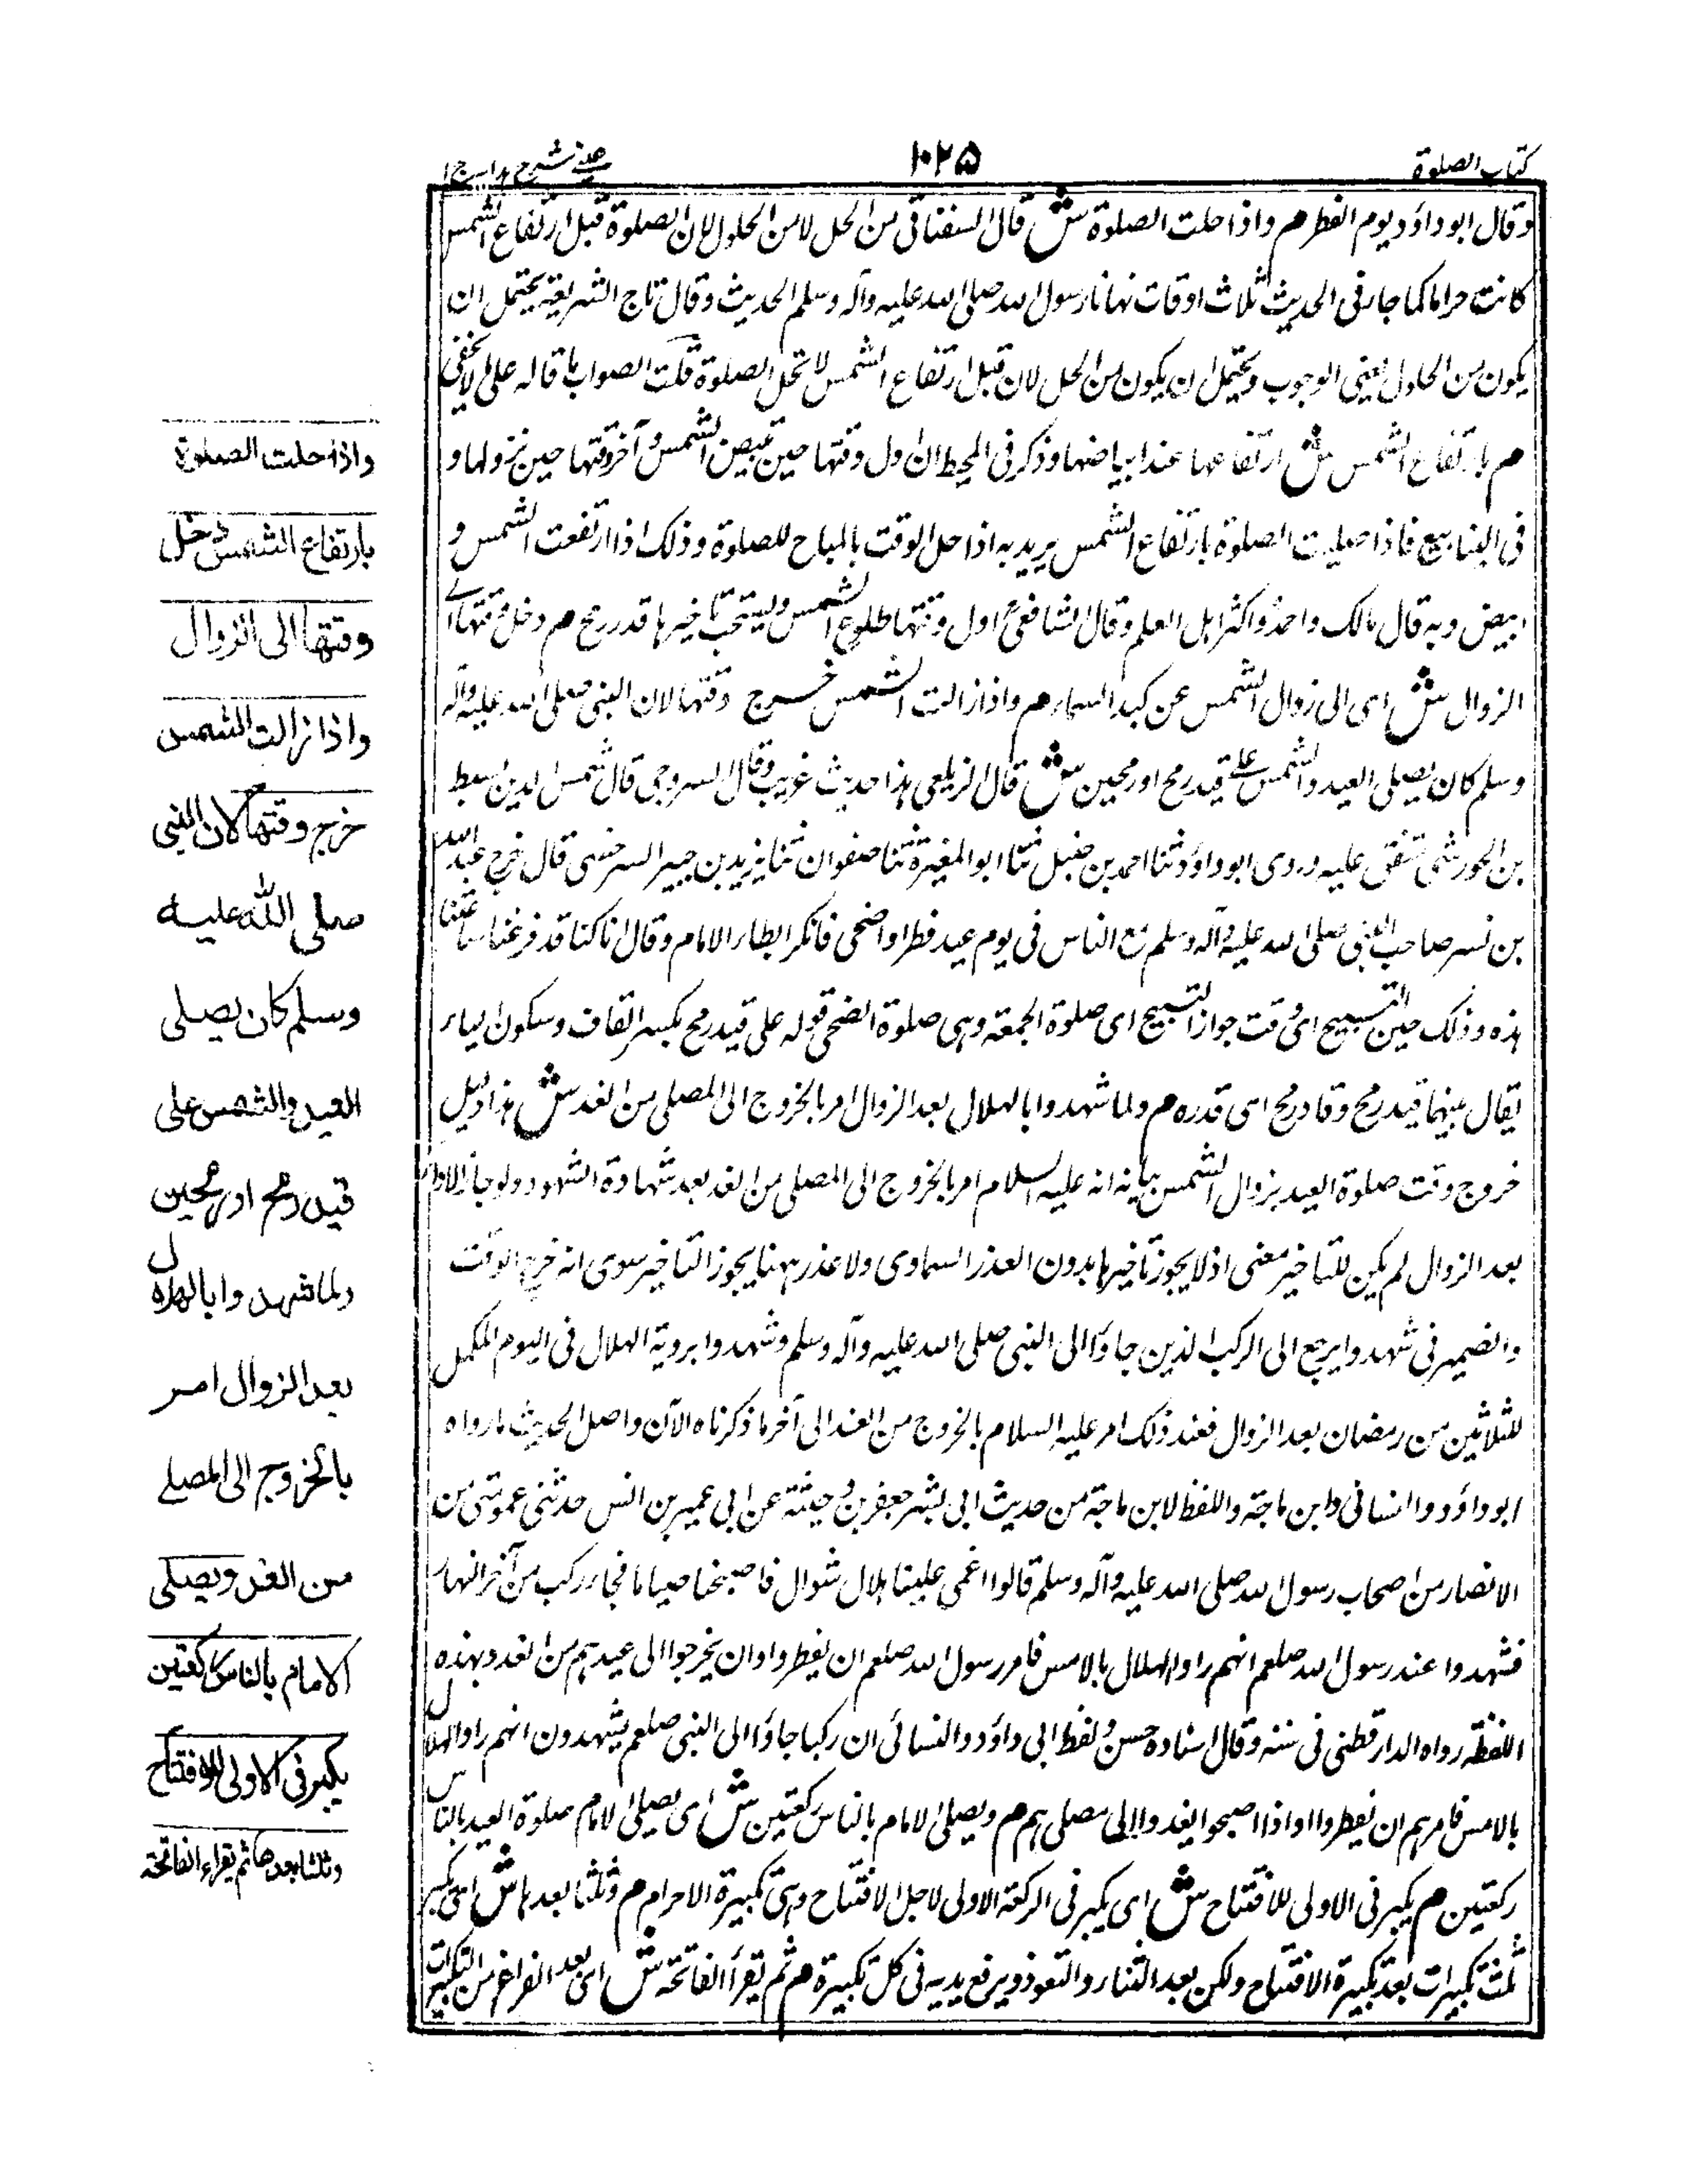 كتاب الصلوة
١٠٢٥
عينى شرح هداية ج ١
وقال ابو داؤد يوم الفطر هم واذا حلت الصلوة ش قال السغناقى من الحل لا من الحلول لان الصلوة قبل ارتفاع الشمس
كانت حراما كما جاء فى الحديث ثلاث اوقات نهانا رسول الله صلى الله عليه وآله وسلم الحديث وقال تاج الشريعة يحتمل ان
يكون من الحلول يعنى الوجوب ويحتمل ان يكون من الحل لان قبل ارتفاع الشمس لا تحل الصلوة قلت الصواب ما قاله على لا يخفى
هم بارتفاع الشمس ش ارتفاعها عند ابيضاضها وذكر فى المحيط ان اول وقتها حين تبيض الشمس وآخر وقتها حين تزولها و
فى الينابيع فاذا حليت الصلوة بارتفاع الشمس يريد به اذا حل الوقت بالمباح للصلوة وذلك اذا ارتفعت الشمس و
ابيض وبه قال مالك واحمد واكثر اهل العلم وقال الشافعى اول وقتها طلوع الشمس ويستحب تاخيرها قدر رمح هم دخل وقتها الى
الزوال ش اى الى زوال الشمس عن كبد السماء هم واذا زالت الشمس خرج وقتها لان النبى صلى الله عليه وآله
وسلم كان يصلى العيد والشمس على قيد رمح او رمحين ش قال الزيلعى هذا حديث غريب وقال السروجى قال شمس الدين سبط
بن الجوزى متفق عليه وروى ابو داؤد ثنا احمد بن حنبل ثنا ابو المغيرة ثنا صفوان ثنا يزيد بن جبير السرخسى قال خرج عبد الله
بن بسر صاحب النبى صلى الله عليه وآله وسلم مع الناس فى يوم عيد فطر او اضحى فانكر ابطاء الامام وقال انا كنا قد فرغنا ساعتنا
هذه وذلك حين التسبيح اى وقت جواز التسبيح اى صلوة الجمعة وهى صلوة الضحى قوله على قيد رمح بكسر القاف وسكون الياء
يقال بينهما قيد رمح وقاد رمح اى قدره هم ولما شهدوا بالهلال بعد الزوال امر بالخروج الى المصلى من الغد ش هذا دليل
خروج وقت صلوة العيد بزوال الشمس بيانه انه عليه السلام امر بالخروج الى المصلى من الغد بعد شهادة الشهود ولو جاز الاداء
بعد الزوال لم يكن للتاخير معنى اذ لا يجوز تاخيرها بدون العذر السماوى ولا عذر ههنا يجوز التاخير سوى انه خرج الوقت
والضمير فى شهدوا يرجع الى الركب الذين جاؤا الى النبى صلى الله عليه وآله وسلم وشهدوا بروية الهلال فى اليوم المكمل
للثلاثين من رمضان بعد الزوال فعند ذلك امر عليه السلام بالخروج من الغد الى آخر ما ذكرناه الآن واصل الحديث ما رواه
ابو داؤد والنسائى وابن ماجة واللفظ لابن ماجة من حديث ابى بشر جعفر بن وحيثة عن ابى عمير بن انس حدثنى عمومتى من
الانصار من اصحاب رسول الله صلى الله عليه وآله وسلم قالوا اغمى علينا هلال شوال فاصبحنا صياما فجاء ركب من آخر النهار
فشهدوا عند رسول الله صلعم انهم راوا الهلال بالامس فامر رسول الله صلعم ان يفطروا وان يخرجوا الى عيدهم من الغد وبهذه
اللفظة رواه الدارقطنى فى سننه وقال اسناده حسن ولفظ ابى داؤد والنسائى ان ركبا جاؤا الى النبى صلعم يشهدون انهم راوا الهلال
بالامس فامرهم ان يفطروا واذا اصبحوا يغدوا الى مصلى هم هم ويصلى الامام بالناس ركعتين ش اى يصلى الامام صلوة العيد بالناس
ركعتين هم يكبر فى الاولى للافتتاح ش اى يكبر فى الركعة الاولى لاجل الافتتاح وهى تكبيرة الاحرام هم وثلثا بعدها ش اى يكبر
ثلث تكبيرات بعد تكبيرة الافتتاح ولكن بعد الثناء والتعوذ ويرفع يديه فى كل تكبيرة هم ثم يقرأ الفاتحة ش اى بعد الفراغ من التكبيرات
واذا حلت الصلوة
بارتفاع الشمس دخل
وقتها الى الزوال
واذا زالت الشمس
خرج وقتها لان النبى
صلى الله عليه
وسلم كان يصلى
العيد والشمس على
قيد رمح او رمحين
ولما شهدوا بالهلال
بعد الزوال امر
بالخروج الى المصلے
من الغد ويصلى
الامام بالناس ركعتين
يكبر فى الاولى للافتتاح
وثلثا بعدها ثم يقراء الفاتحة